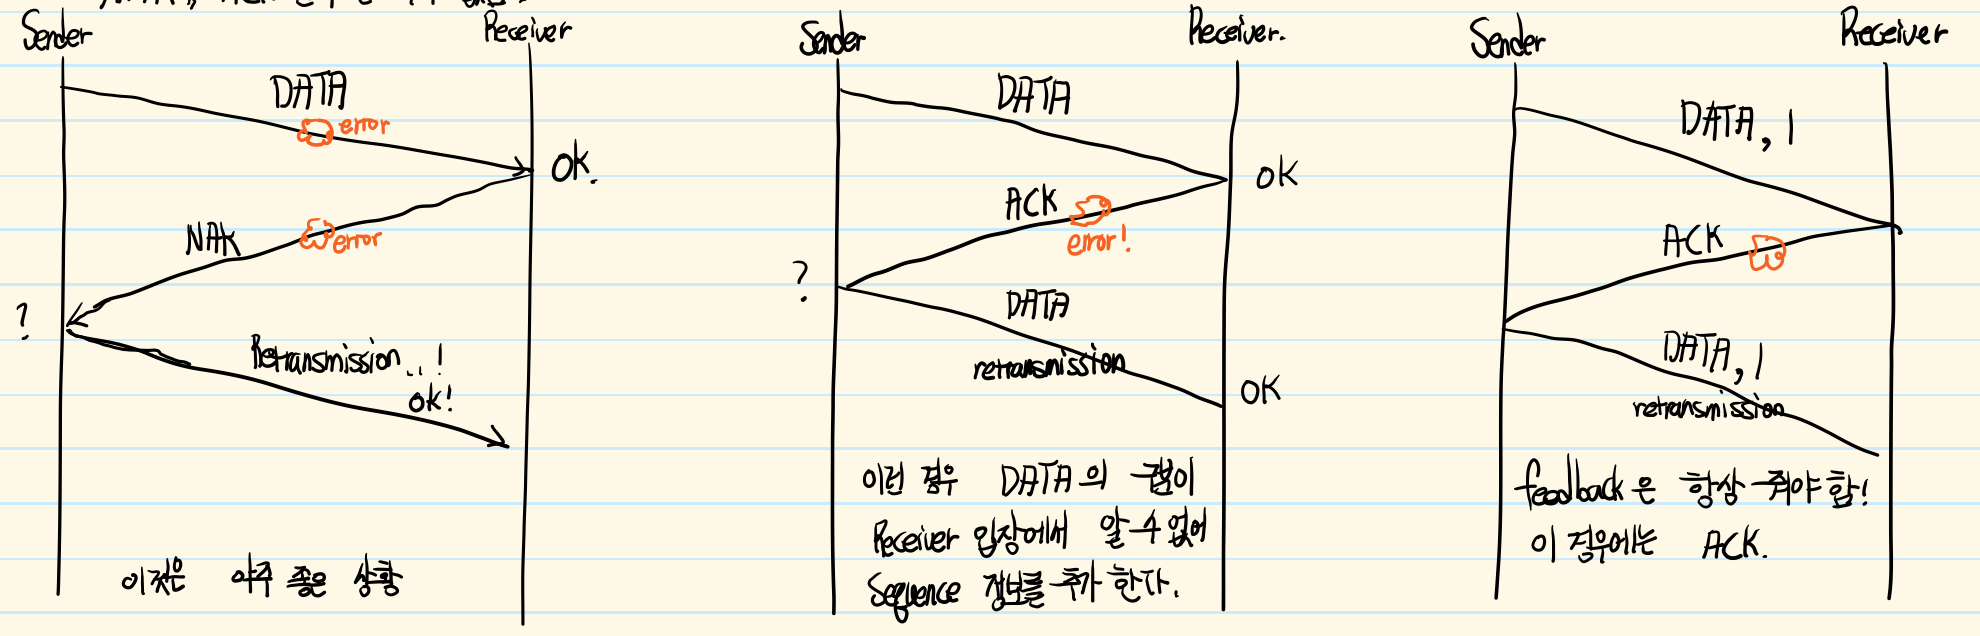 Sender
Receiver
DATA
error
OK.
NAK
error
?
Retransmission..!
OK!
이것은 아주 좋은 상황
Sender
Receiver.
DATA
OK
ACK
error!
?
DATA
retransmission
OK
이런 경우 DATA의 구분이
Receiver 입장에서 알 수 없어
Sequence 정보를 추가 한다.
Sender
Receiver
DATA, 1
ACK
DATA, 1
retransmission
feedback은 항상 줘야 함!
이 경우에는 ACK.